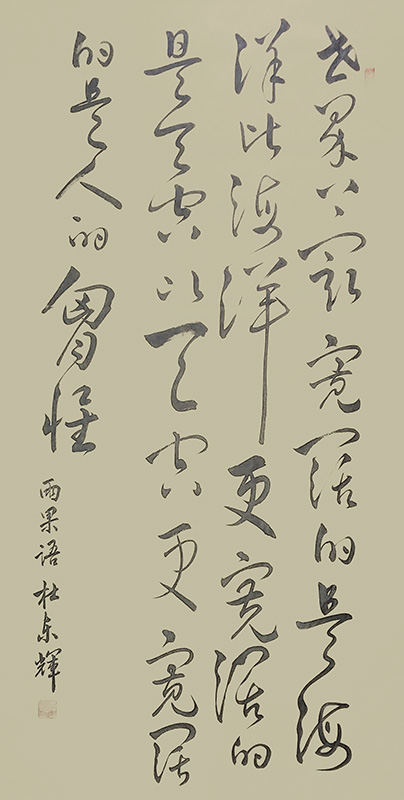 世界上最宽阔的是海
洋比海洋更宽阔的
是天空比天空更宽阔
的是人的胸怀
雨果語 杜东輝